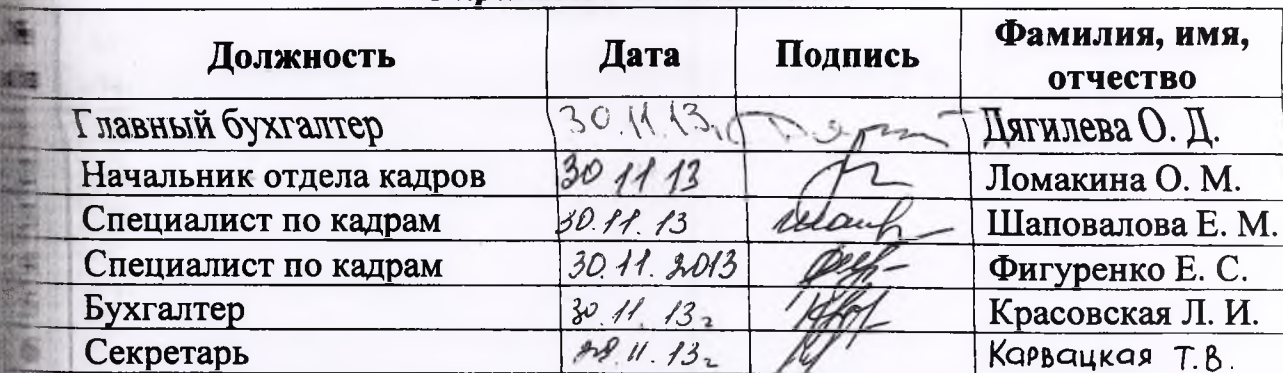 Должность Дата Подпись Фамилия, имя,
отчество
Главный бухгалтер 30.11.13г Дягилева О. Д.
Начальник отдела кадров 30 11 13 Ломакина О. М.
Специалист по кадрам 30.11.13 Шаповалова Е. М.
Специалист по кадрам 30.11.2013 Фигуренко Е. С.
Бухгалтер 30.11.13г Красовская Л. И.
Секретарь Карвацкая Т.В.